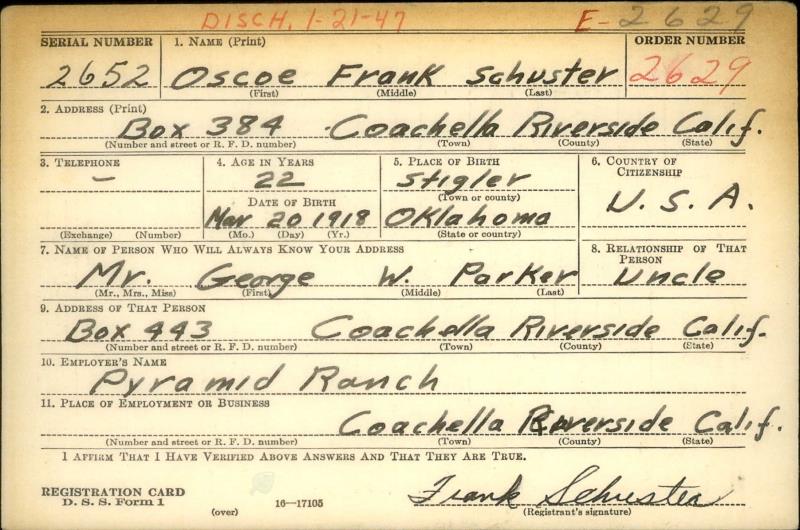 DISCH. 1-21-47 E-2629
SERIAL NUMBER 1. NAME (Print) ORDER NUMBER
2652 Oscoe Frank Schuster 2629
(First) (Middle) (Last)
2. ADDRESS (Print)
Box 384 Coachella Riverside Calif.
(Number and street or R. F. D. number) (Town) (County) (State)
3. TELEPHONE 4. AGE IN YEARS 5. PLACE OF BIRTH 6. COUNTRY OF CITIZENSHIP
– 22 Stigler U. S. A.
(Town or county)
DATE OF BIRTH
Mar 20 1918 Oklahoma
(Exchange) (Number) (Mo.) (Day) (Yr.) (State or country)
7. NAME OF PERSON WHO WILL ALWAYS KNOW YOUR ADDRESS 8. RELATIONSHIP OF THAT PERSON
Mr. George W. Parker Uncle
(Mr., Mrs., Miss) (First) (Middle) (Last)
9. ADDRESS OF THAT PERSON
Box 443 Coachella Riverside Calif.
(Number and street or R. F. D. number) (Town) (County) (State)
10. EMPLOYER'S NAME
Pyramid Ranch
11. PLACE OF EMPLOYMENT OR BUSINESS
Coachella Riverside Calif.
(Number and street or R. F. D. number) (Town) (County) (State)
I AFFIRM THAT I HAVE VERIFIED ABOVE ANSWERS AND THAT THEY ARE TRUE.
REGISTRATION CARD
D. S. S. Form 1 (over) 16—17105 Frank Schuster
(Registrant's signature)